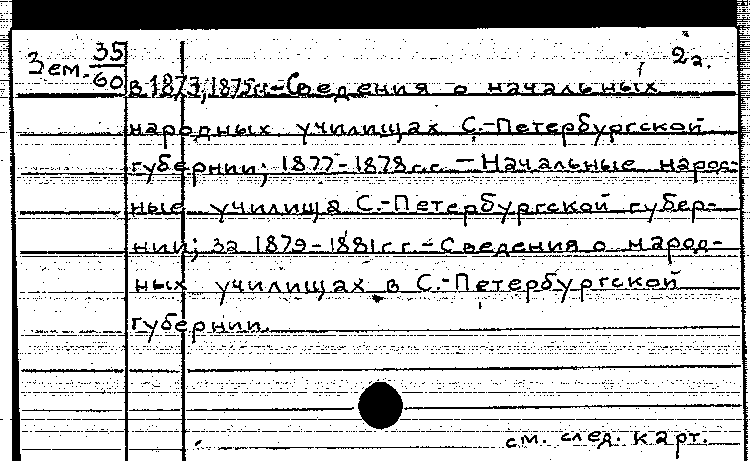 Зем. 35/60
2а.
в 1873, 1875гг.-Сведения о начальных
народных училищах С.-Петербургской
губернии; 1877-1878г.г. - Начальные народ-
ные училища С.-Петербургской губер-
нии; за 1879-1881г.г. - Сведения о народ-
ных училищах в С.-Петербургской
губернии.
см. след. карт.